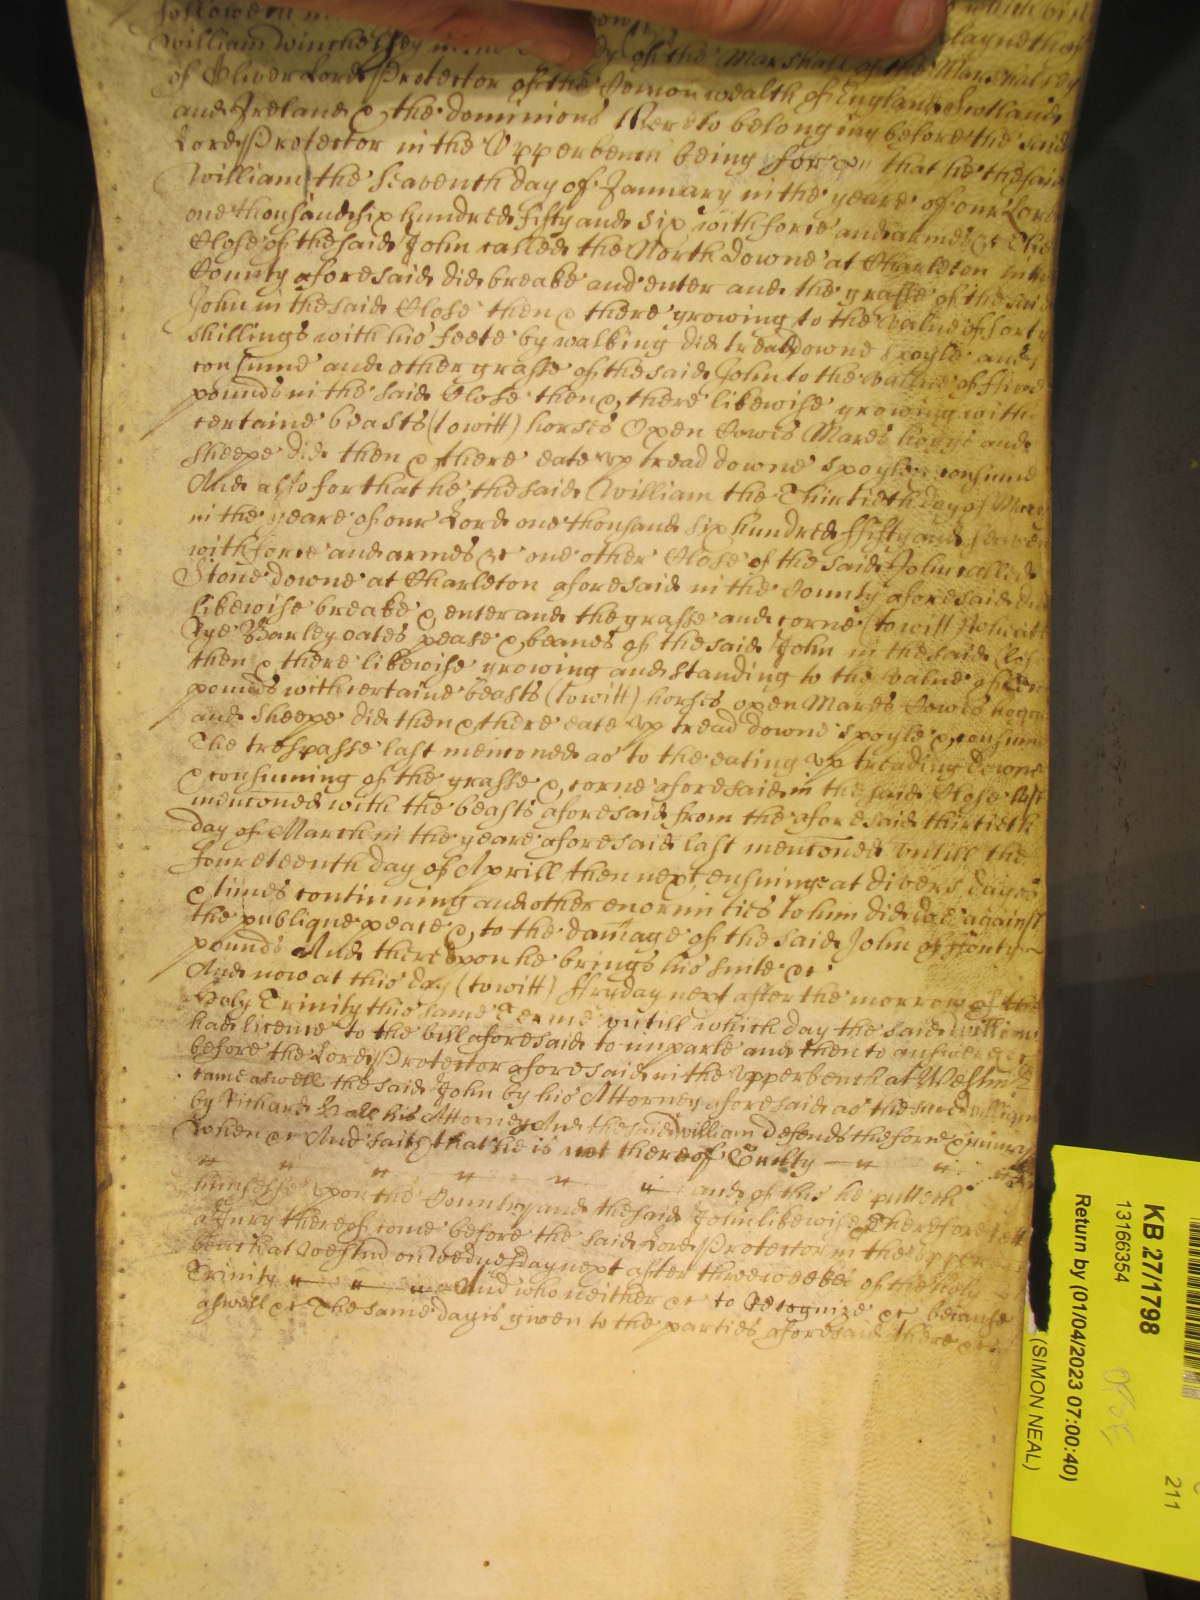 william winchelsey in the of the Marshall of the Marshalsey
of Oliver Lord Protector of the Comonwealth of England Scotland
and Ireland & the dominions thereto belonging before the said
Lord Protector in the Upperbench being for & that he the said
William the Seaventh day of January in the yeare of our Lord
one thousand six hundred fifty and six with force and armes &c The
Close of the said John called the North Downe at Charleton in the
County aforesaid did breake and enter and the grasse of the said
John in the said Close then & there growing to the value of forty
shillings with his feete by walking did tread downe spoyle and
consume and other grasse of the said John to the value of
pounds in the said Close then & there likewise growing with
certaine beasts (to witt) horses Oxen Cowes Mares hoggs and
sheepe did then & there eate up tread downe spoyle & consume
And also for that he the said William the Thirtieth day of March
in the yeare of our Lord one thousand six hundred ffifty and seaven
with force and armes &c one other Close of the said John called
Stone downe at Charleton aforesaid in the County aforesaid did
likewise breake & enter and the grasse and corne (to witt
Rye Barley oates pease & beanes of the said John in the said
then & there likewise growing and standing to the value of
pounds with certaine beasts (to witt) horses oxen Mares Cowes hoggs
and sheepe did then & there eate up tread downe spoyle & consume
The trespasse last menconed as to the eating up treading downe
& consuming of the grasse & corne aforesaid in the said Close last
menconed with the beasts aforesaid from the aforesaid thirtieth
day of March in the yeare aforesaid last menconed untill the
fourteteenth day of Aprill then next ensuinge at divers dayes
& times continuing and other enormities to him did doe against
the publique peace & to the damage of the said John of
pounds And thereupon he brings his suite &c
And now at this day (to witt) ffryday next after the morrow of the
Holy Trinity this same Terme untill which day the said William
had licence to the bill aforesaid to imparle and then to answer &c
before the Lord Protector aforesaid in the Upperbench at Westm
came aswell the said John by his Attorney aforesaid as the said William
by Richard Hall his Attorney And the said William defends the force & injury
when &c And saith that he is not thereof Guilty
and of this he putteth
himselfe upon the Country and the said John likewise Therefore lett
a Jury thereof come before the said Lord Protector in the upper
bench at Westm on Wednesday next after three weekes of the holy
Trinity And who neither &c to Recognize &c because
aswell &c The same day is given to the parties aforesaid there &c
KB 27/1798
13166354
Return by (01/04/2023 07:00:40)
(SIMON NEAL)
211